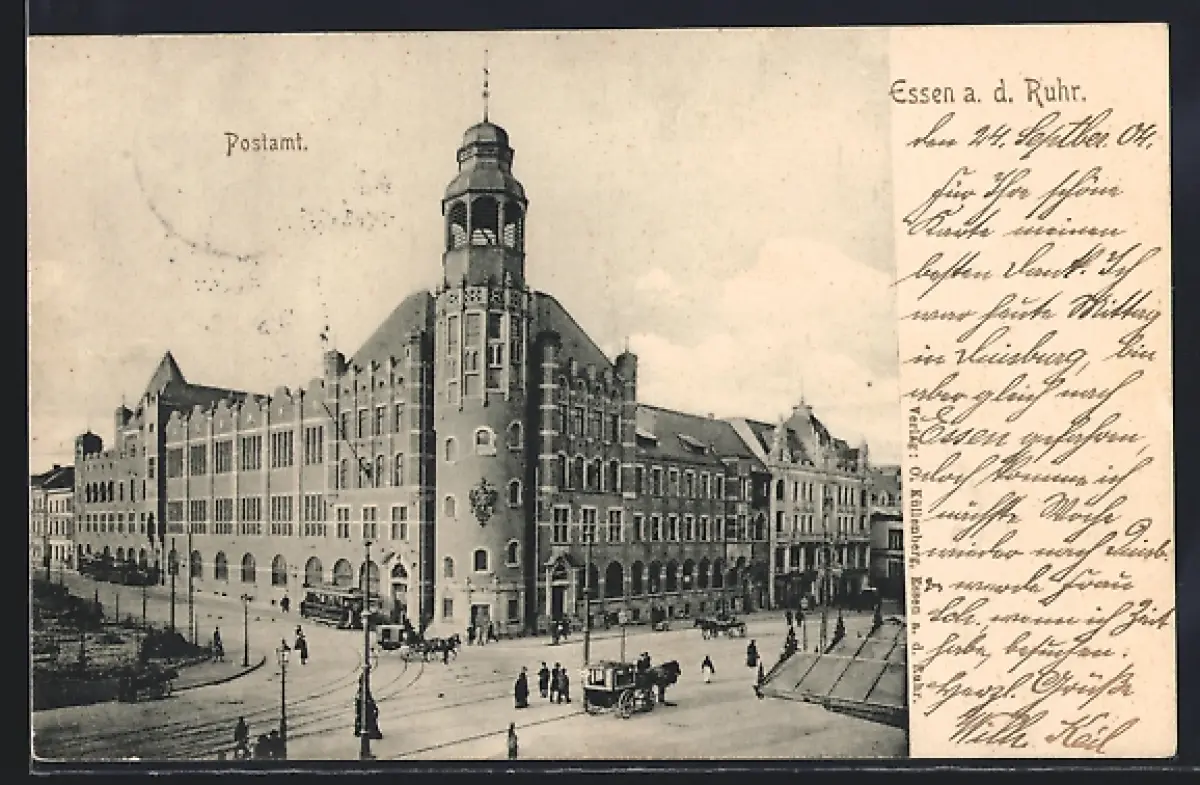 Postamt.
Essen a. d. Ruhr.
den 24. Septber. 04.
Für Ihre schöne
Karte meinen
besten Dank. Ich
war heute Mittag
in Duisburg, bin
aber gleich nach
Essen gefahren,
doch komme ich
nächste Woche
wieder nach Duisb.
& werde Frau
Loh. wenn ich Zeit
habe, besuchen.
Herzl. Grüße
Wilh. Keil
Verlag: O. Küllenberg, Essen a. d. Ruhr.